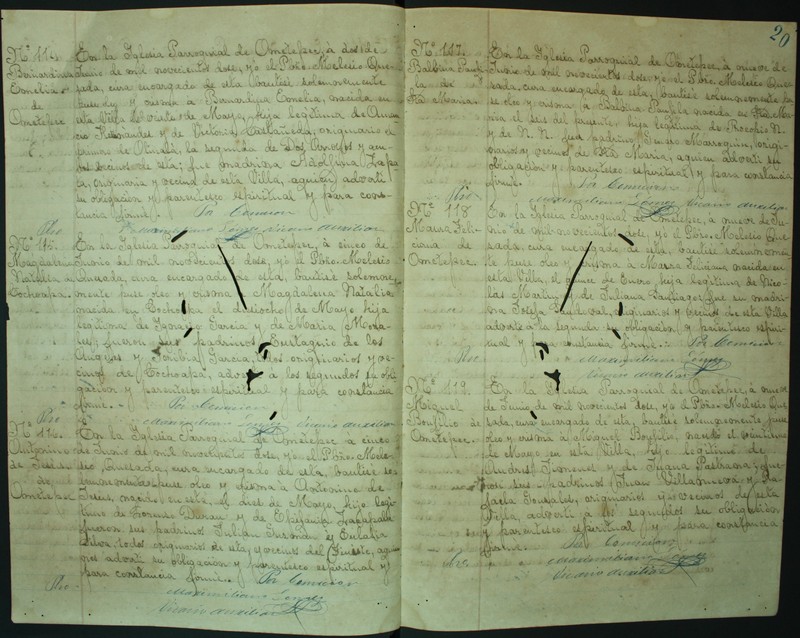 Nº 114.
Bernardina
Emelia
de
Ometepec
En la Iglesia Parroquial de Ometepec, á dos de
Junio de mil novecientos dose, yo el Pbro. Melesio Que-
sada, cura encargado de esta, bautisé solemnemente
puse oleo y crisma á Bernardina Emelia, nacida en
esta Villa el veinte de Mayo, hija legitima de
Hernandes y de Victoria Castañeda, originario el
primero de la segunda de Dos Arroyos y am-
bos vecinos de esta; fue madrina Adolfina Zapa-
ta, originaria y vecina de esta Villa, á quien advertí
su obligacion y parentesco espiritual y para cons-
tancia firmé.
Por Comision
Maximiliano Lopez
Vicario auxiliar
Nº 115.
Magdalena
Natalia de
Cochoapa.
En la Iglesia Parroquial de Ometepec, á cinco de
Junio de mil novecientos dose, yo el Pbro. Melesio
Quesada, cura encargado de esta, bautisé solemne-
mente puse oleo y crisma á Magdalena Natalia
nacida en Cochoapa el dieciocho de Mayo hija
legitima de Ignacio Garcia y de Maria Mora-
les; fueron sus padrinos Eustaquio de los
Angeles y Garcia, todos originarios y ve-
cinos de Cochoapa, advertí á los segundos su obli-
gacion y parentesco espiritual y para constancia
firmé.
Por Comision
Maximiliano Lopez
Vicario auxiliar
Nº 116.
Antonino
de Jesus
de
Ometepec
En la Iglesia Parroquial de Ometepec á cinco
de Junio de mil novecientos dose, yo el Pbro. Mele-
sio Quesada, cura encargado de esta, bautisé so-
lemnemente puse oleo y crisma á Antonino de
Jesus, nacido en esta, el dies de Mayo, hijo legi-
timo de Lorenso Duran y de Epifania
fueron sus padrinos Julian Guzmán y Eulalia
Silva, todos originarios de esta y vecinos del á quie-
nes advertí su obligacion y parentesco espiritual y
para constancia firmé.
Por Comision
Maximiliano Lopez
Vicario auxiliar
20
Nº 117.
Balbina
de
Sta Maria.
En la Iglesia Parroquial de Ometepec, á nueve de
Junio de mil novecientos dose, yo el Pbro. Melesio Que-
sada, cura encargado de esta, bautisé solemnemente
puse oleo y crisma á Balbina nacida en Sta Ma-
ria el seis del presente, hija legitima de N.
y de N. N. fué padrino Marroquin, origi-
nario y vecino de Sta Maria, á quien advertí su
obligacion y parentesco espiritual y para constancia
firmé.
Por Comision
Maximiliano Lopez
Vicario auxiliar
Nº 118
Maura Feli-
ciana de
Ometepec.
En la Iglesia Parroquial de Ometepec, á nueve de Ju-
nio de mil novecientos dose, yo el Pbro. Melesio Que-
sada, cura encargado de esta, bautisé solemnemen-
te puse oleo y crisma á Maura Feliciana nacida en
esta Villa, el quince de Enero, hija legitima de Nico-
las Martinez y de Juliana Santiago, fue su madri-
na Josefa Sandoval, originarios y vecinos de esta Villa
advertí á la segunda su obligacion y parentesco espiri-
tual y para constancia firmé.
Por Comision
Maximiliano Lopez
Vicario auxiliar
Nº 119
Miguel
Bonfilio de
Ometepec.
En la Iglesia Parroquial de Ometepec, á nueve
de Junio de mil novecientos dose, yo el Pbro. Melesio Que-
sada, cura encargado de esta, bautisé solemnemente puse
oleo y crisma á Miguel Bonfilio, nacido el
de Mayo en esta Villa, hijo legitimo de
Andres Jimenes y de Juana Pastrana; fue-
ron sus padrinos Juan Villanueva y Ra-
faela Gonsales, originarios y vecinos de esta
Villa, advertí á los segundos su obligacion
y parentesco espiritual y para constancia
firmé.
Por Comision
Maximiliano Lopez
Vicario auxiliar